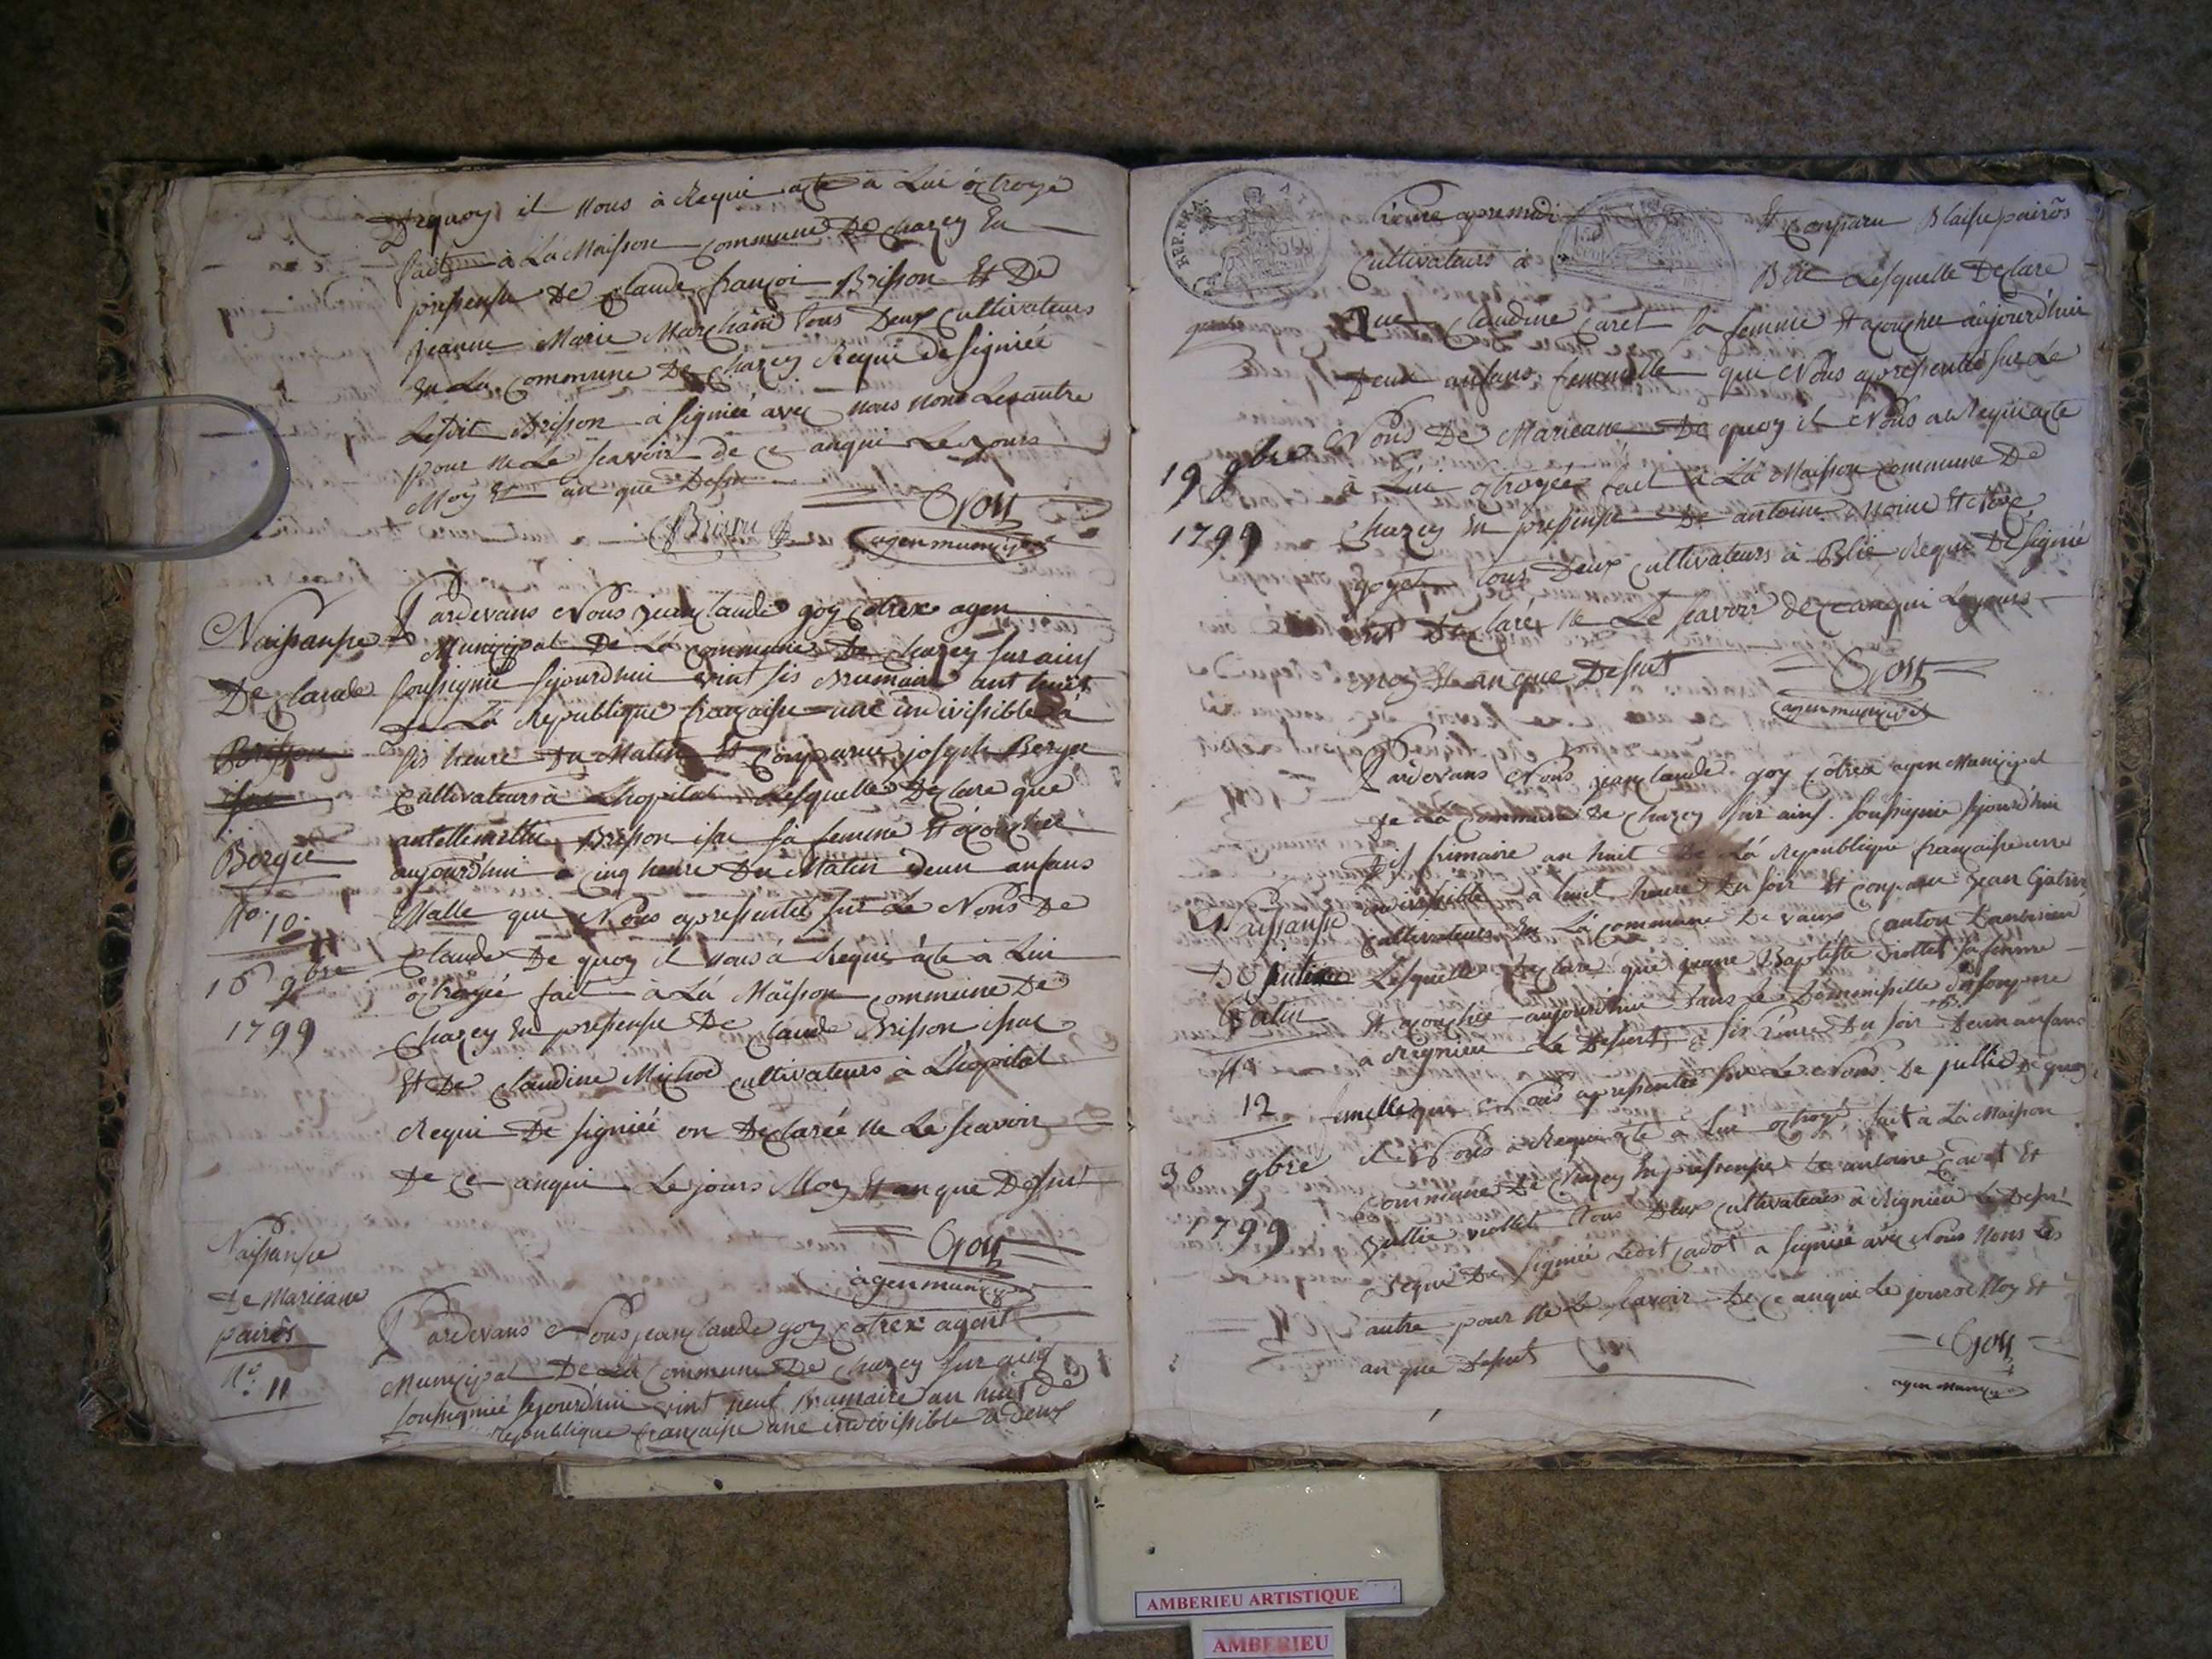 Dequoy il nous à Requi acte a Lui octroyé
fait à La Maisson commune De Chazey En
pressensse De Claude françoi Brisson Et De
jeanne Marie Marchand tous Deux Cultivateurs
En La Commune De Chazey Requi de signiée
Ledit Brisson à signiéé avec nous non Les autre
pour ne Le scavoir de ce anqui Le jours
Moy Et an que Dessu
Brisson
Goy
agen municipal
Naissansse
De Claude
Brisson
isac
Berger
No. 10.
16 9bre
1799
Pardevans Nous jean Claude goy Cotrex agen
Municipal De La commune De Chazey sur ains
soussignié sejourdhui vint sis Brumaire ant huit
De La Republique françaisse une indivissible à
sis heure Du Matin Et Comparue joseph Berger
Cultivateurs à Lhopital Lesquelle Declare que
antellemette Brisson isac sa femme Et acouchée
aujourdhui à Cinq heure Du Matin deun anfans
Malle que Nous apressentée sur Le Nons De
Claude De quoy il nous à Requi acte a Lui
octroyéé fait à La Maisson commune De
Chazey En pressensse De Claude Brisson isac
Et De Claudine Michod cultivateurs à Lhopital
Requi De signiéé on Declarée ne Le scavoir
De ce anqui Le jours Moy Et an que Dessut
Goy
agen municipal
Naissansse
De Marieane
pairôs
No. 11
Pardevans Nous jean Claude goy Cotrex agent
Municipal De La Commune De Chazey sur ains
soussigniéé sejourdhui vint neuf Brumaire an huit De
republique françaisse une indivissible a deux
REP. FRA.
heure apre midi Et Comparu Blaisse pairôs
Cultivateurs à Blie Lesquelle Declare
que Claudine Caret sa femme Et acouchee aujourdhui
Deun anfans femmelle que Nous apressentée sur Le
Nons De Marieane De quoy il Nous a Requi acte
à Lui octroyéé fait à La Maisson commune De
Chazey En pressensse De antoine Moine Et
goyet tous Deux Cultivateurs à Blie Requi De signié
ont Declaréé ne Le scavoir de ce anqui Le jours
Moy Et an que Dessut
19 9bre
1799
Goy
agen municipal
Naissansse
De juliene
Gatin
No
12
30 9bre
1799
Pardevans Nous jean Claude goy Cotrex agen Municipal
De La Commune De Chazey sur ains soussignié sejourdhui
frimaire an huit De La Republique françaisse une
indivissible à huit heure Du soir Et Comparu jean Gatin
Cultivateurs En La Commune De vaux Canton Dambérieux
Lesquelle Declare que jeane Baptiste viollet sa femme
Et acouchéé aujourdhui Dans Le Domenissille De son pere
a Rignieu Le Desert a sis heure Du soir Deun anfans
femelle que Nous apressentée sur Le Nons De jullie De quoy
il Nous à Requi acte à Lui octroyé fait a La Maisson
Commune De Chazey En pressensse De antoine Cadot Et
jullie viollet tous Deux Cultivateurs à Rignieu Le Desert
Requi De signiéé Ledit Cadot a signiéé avec Nous Nons Les
autre pour ne Le scavoir De ce anqui Le jours Moy Et
an que Dessut
Goy
agen municipal
AMBERIEU ARTISTIQUE
AMBERIEU